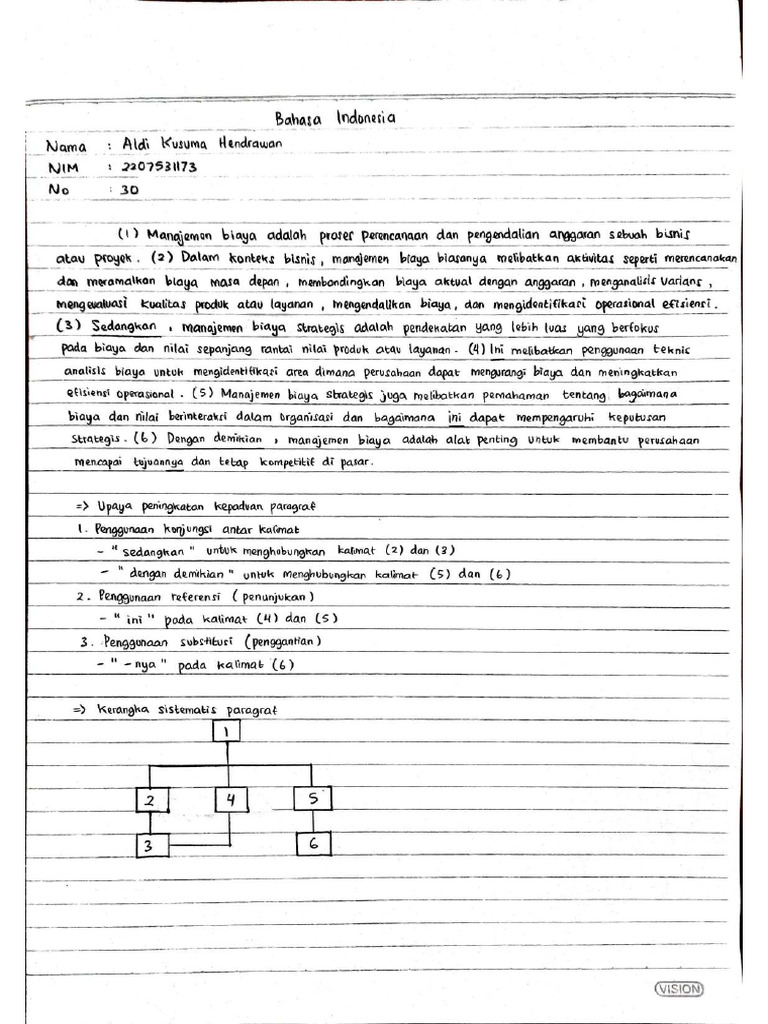 Bahasa Indonesia
Nama : Aldi Kusuma Hendrawan
NIM : 2207531173
No : 30
(1) Manajemen biaya adalah proses perencanaan dan pengendalian anggaran sebuah bisnis
atau proyek. (2) Dalam konteks bisnis, manajemen biaya biasanya melibatkan aktivitas seperti merencanakan
dan meramalkan biaya masa depan, membandingkan biaya aktual dengan anggaran, menganalisis varians,
mengevaluasi kualitas produk atau layanan, mengendalikan biaya, dan mengidentifikasi operasional efisiensi.
(3) Sedangkan, manajemen biaya strategis adalah pendekatan yang lebih luas yang berfokus
pada biaya dan nilai sepanjang rantai nilai produk atau layanan. (4) Ini melibatkan penggunaan teknis
analisis biaya untuk mengidentifikasi area dimana perusahaan dapat mengurangi biaya dan meningkatkan
efisiensi operasional. (5) Manajemen biaya strategis juga melibatkan pemahaman tentang bagaimana
biaya dan nilai berinteraksi dalam organisasi dan bagaimana ini dapat mempengaruhi keputusan
strategis. (6) Dengan demikian, manajemen biaya adalah alat penting untuk membantu perusahaan
mencapai tujuannya dan tetap kompetitif di pasar.
=> Upaya peningkatan kepaduan paragraf
1. Penggunaan konjungsi antar kalimat
- "sedangkan" untuk menghubungkan kalimat (2) dan (3)
- "dengan demikian" untuk menghubungkan kalimat (5) dan (6)
2. Penggunaan referensi (penunjukan)
- "ini" pada kalimat (4) dan (5)
3. Penggunaan substitusi (penggantian)
- "-nya" pada kalimat (6)
=> Kerangka sistematis paragraf
1
2 4 5
3 6
VISION